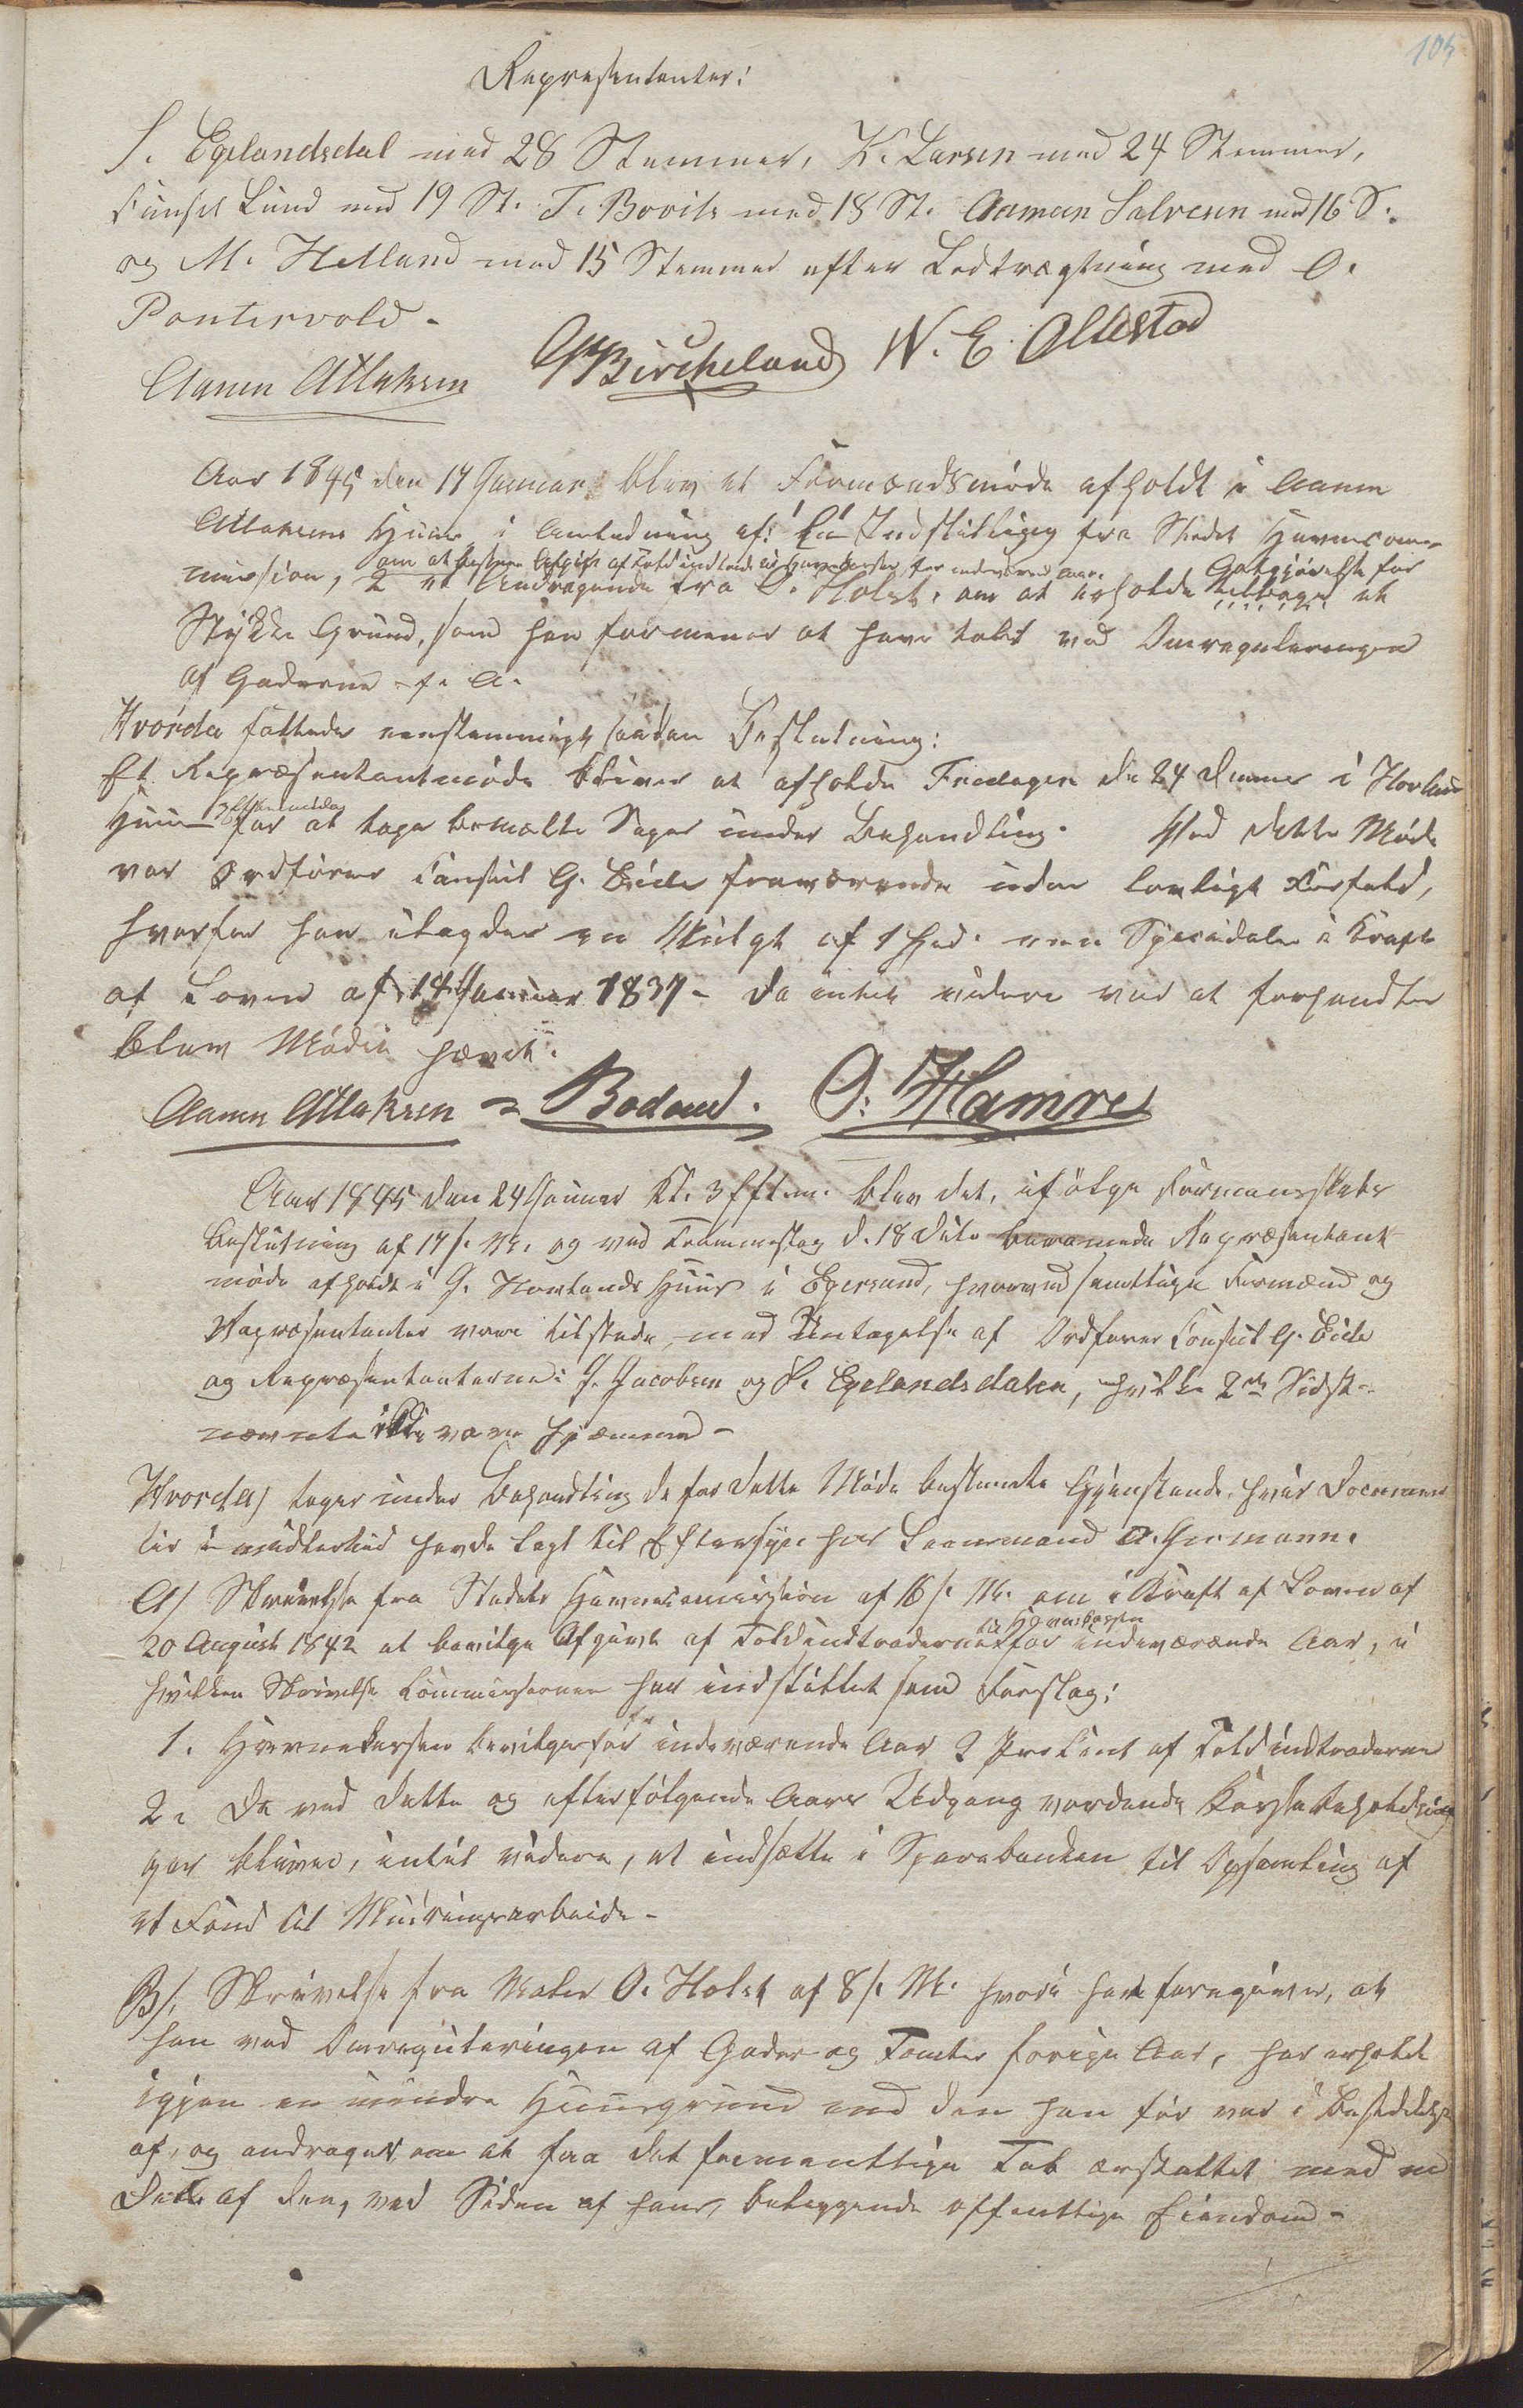 105
Representanter:
S. Egelandsdal med 28 Stemmer, K. Larsen med 24 Stemmer,
Lund med 19 St. T. Bovits med 18 St. Aamen Salvesen med 16 S.
og M. Hetland med 15 Stemmer efter Lodtrægtning med O.
Pontervold -
Aanen Atlaksen G Bircheland N. E. Ollestad
Aar 1845 den 17 Januar blev et Formandsmøde afholdt i Aanen
Atlaksens Huus i Anledning af: Indstilling fra Stedets Havnecom-
om at bestemme Afgift af Toldindtraderne til Havnekassen for indeværende Aar. Godtgjørelse for
mission, 2 et Andragende fra O. Holst, om at erholde tilbage et
Stykke Grund, som han formener at have tabt ved Omreguleringen
af Gaderne f. A.
Hvorda fattedes eenstemmigt saadan Beslutning:
Et Repræsentantmøde bliver at afholde Fredagen den 24 dennes i Hovlands
Eftermiddag
Huus for at tage bemældte Sager under Behandling. Ved dette Møde
var Ordfører Consul G. Eide fraværende uden lovligt Forfald,
hvorfor han ilagdes en Mulgt af 1 Spd. een Speciedaler i Kraft
af Loven af 14 Januar 1837 - Da intet videre var at forhandle
blev Mødet hævet.
Aanen Atlaksen Bodand. O. Hamre
Aar 1845 den 24 Januar Kl. 3 Efterm. blev det, ifølge Formandskabets
Beslutning af 17 s. M. og ved Trommeslag d. 18 dito berammede Repræsentant-
møde afholdt i G. Hovlands Huus i Egersund, hvorved samtlige Formænd og
Repræsentanter vare tilstede, med Undtagelse af Ordfører Consul G. Eide
og Repræsentanterne: J. Jacobsen og S. Egelandsdalen, hvilke 2de Sidst-
nævnte ikke vare hjemme -
Hvorda toges under Behandling de for dette Møde bestemte Gjenstande, hvis Documen-
ter imidlertid havde lagt til Eftersyn hos Leensmand
A/ Skrivelse fra Stedets Havnecommission af 16 s. M. om i Kraft af Loven af
til Havnekassen
20 August 1842 at bevilge Afgivt af Toldindtraderne for indeværende Aar, i
hvilken Skrivelse Commissionen har indstillet som Forslag:
1. Havnekassen bevilges for indeværende Aar 2 Procent af Toldindtraderne
2. De ved dette og efterfølgende Aars Udgang vordende Kassebeholdnin-
ger bliver, indtil videre, at indsætte i Sparebanken til Opsamling af
et Fond til Mudringsarbeide -
B/ Skrivelse fra Maler O. Holst af 8 s. M. hvori han foregiver, at
han ved Omreguleringen af Gader og Tomter forige Aar, har erholdt
igjen en mindre Huusgrund end den han før var i Besiddelse
af, og andrager om at faa det formentlige Tab erstattet med en
Deel af den, ved Siden af hans, beliggende offentlige Eiendom -